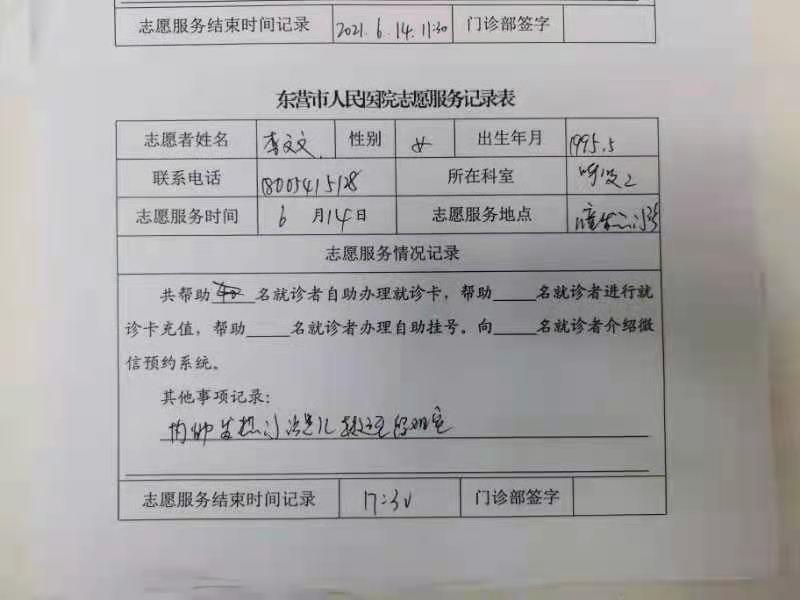 志愿服务结束时间记录 2021.6.14.11:30 门诊部签字
东营市人民医院志愿服务记录表
志愿者姓名 李文文 性别 女 出生年月 1995.5
联系电话 18005415128 所在科室 呼吸2
志愿服务时间 6 月14日 志愿服务地点
志愿服务情况记录
共帮助 名就诊者自助办理就诊卡，帮助____名就诊者进行就
诊卡充值，帮助____名就诊者办理自助挂号。向____名就诊者介绍微
信预约系统。
其他事项记录：
发热门诊
志愿服务结束时间记录 17:30 门诊部签字